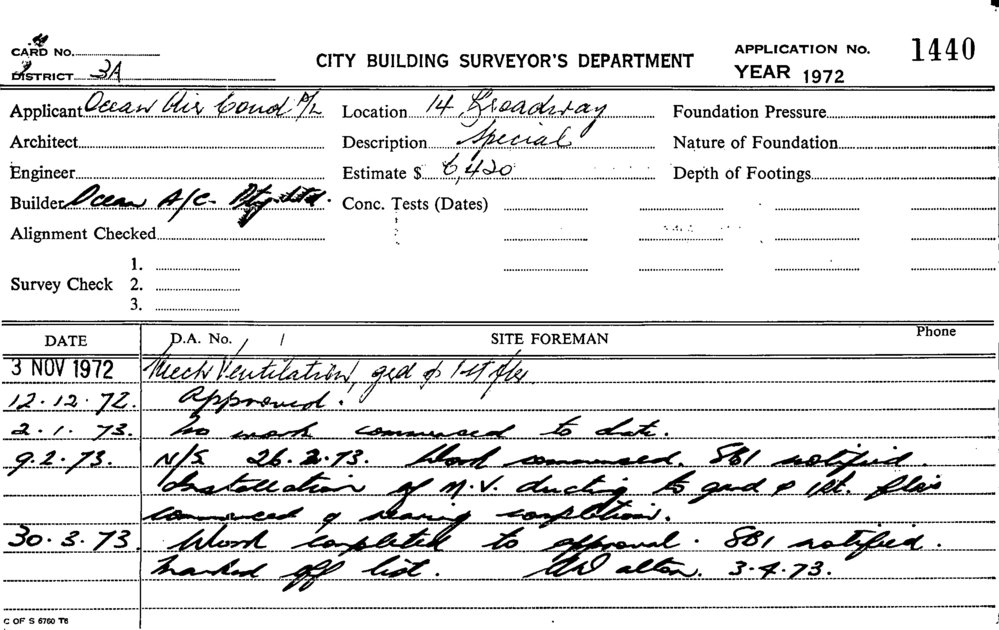 CARD No.
DISTRICT 3A
CITY BUILDING SURVEYOR'S DEPARTMENT
APPLICATION No. 1440
YEAR 1972
Applicant Ocean Air Cond P/L
Location 14 Broadway
Foundation Pressure
Architect
Description Special
Nature of Foundation
Engineer
Estimate $ 6,420
Depth of Footings
Builder Ocean A/C. Pty. Ltd.
Conc. Tests (Dates)
Alignment Checked
Survey Check 1.
2.
3.
DATE D.A. No. SITE FOREMAN Phone
3 NOV 1972 Mech Ventilation, grd & 1st flrs.
12.12.72. Approved.
2.1.73. No work commenced to date.
9.2.73. N/S 26.2.73. Work commenced. SB1 notified.
Installation of M.V. ducting to grd & 1st. flrs
commenced & nearing completion.
30.3.73. Work completed to approval. SB1 notified.
Marked off list. 3.4.73.
C OF S 6760 T6